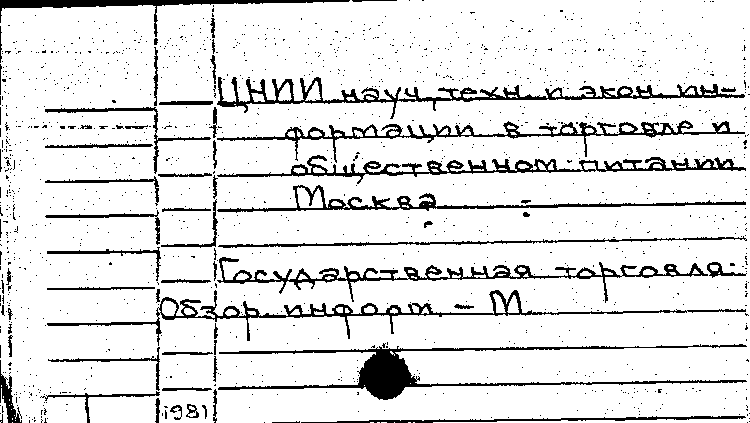 ЦНИИ науч., техн. и экон. ин-
формации в торговле и
общественном питании
Москва :
Государственная торговля:
Обзор. информ. – М.
1981